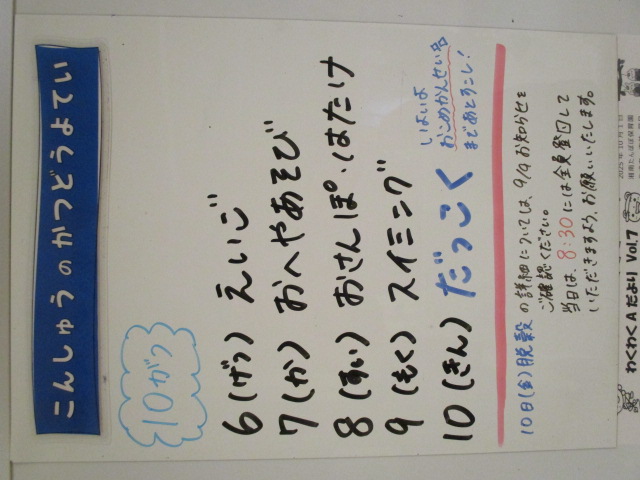 こんしゅうのかつどうよてい
10がつ
6(げつ) えいご
7(か) おへやあそび
8(すい) おさんぽ・はたけ
9(もく) スイミング
10(きん) だっこく
いよいよ
おこめかんせい
まであとすこし!
10日(金)脱穀の詳細については、9/4お知らせを
ご確認ください。
当日は、8:30には全員登園して
いただきますよう、お願いいたします。
2025年10月1日
湘南たんぽぽ保育園
わくわくAだより Vol.7